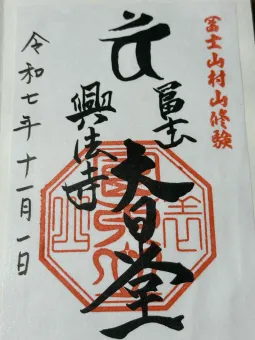 冨士山村山修験
冨士
大日堂
興法寺
令和七年十一月一日